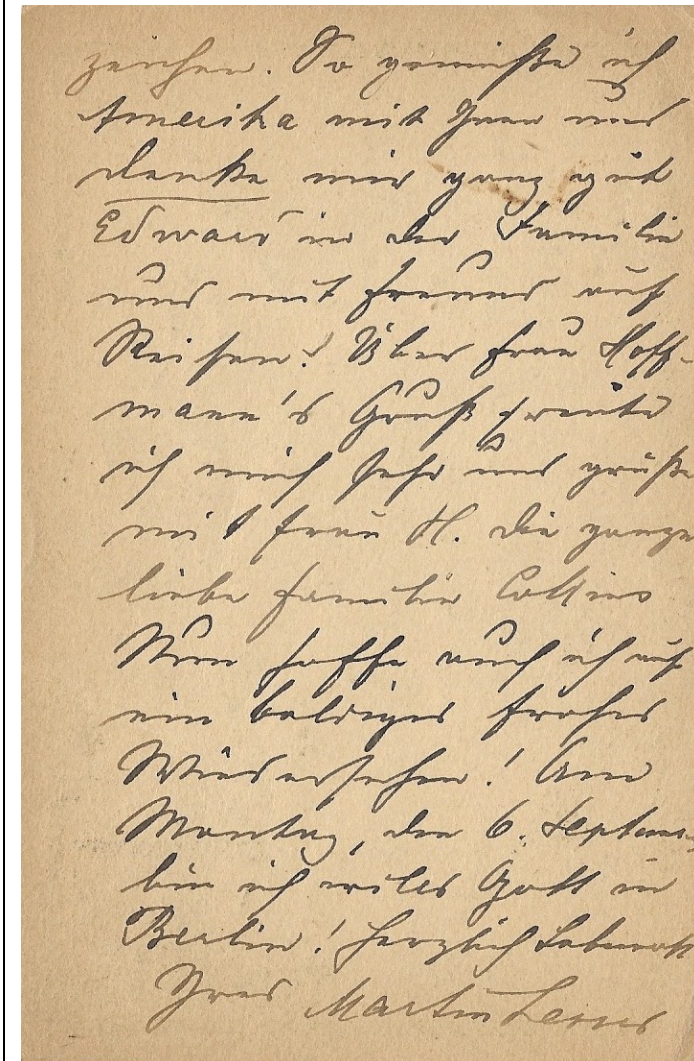 zeichen. So genieße ich
Amerika mit Ihnen und
danke mir ganz gut
Edward in der Familie
und mit Freund auf
Reisen! Über Frau Hoff-
mann's Gruß freute
ich mich sehr und grüße
mit Frau H. die ganze
liebe Familie Collins
Nun hoffe auch ich auf
ein baldiges frohes
Wiedersehen! Am
Montag, den 6. Septem
bin ich wills Gott in
Berlin! Herzlich Lebewohl
Ihres Martin